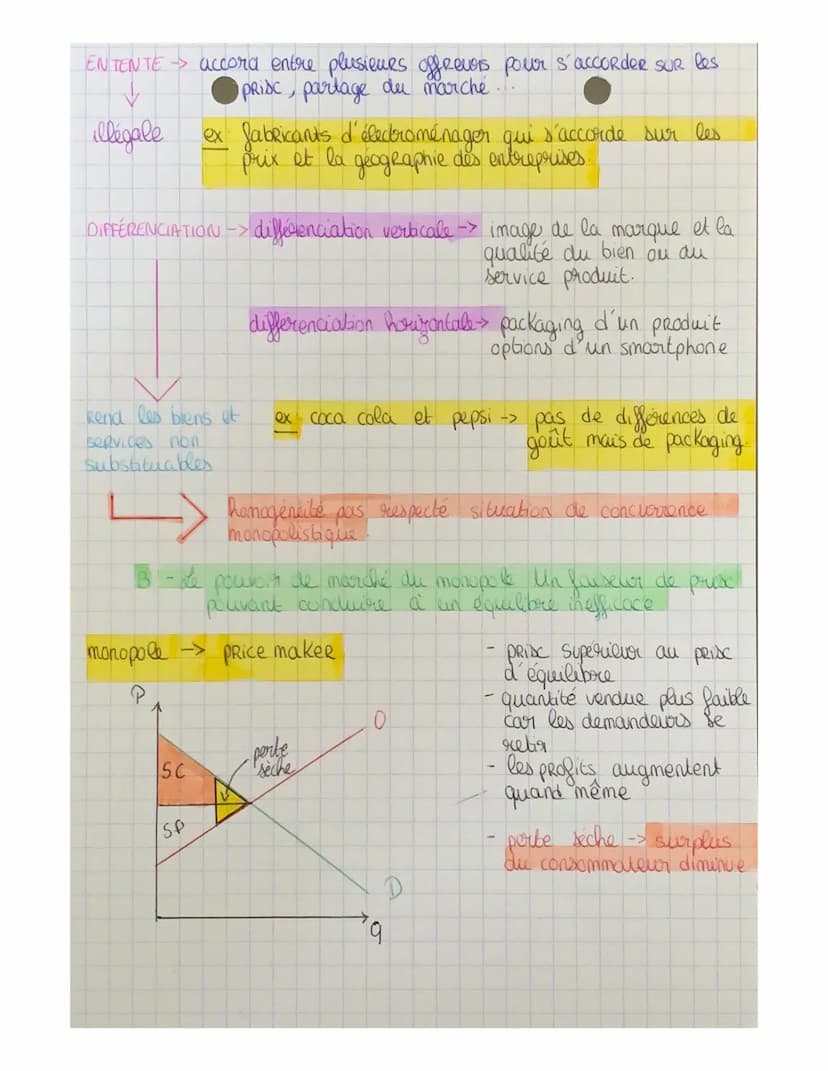 ENTENTE -> accord entre plusieurs offreurs pour s'accorder sur les
prix, partage du marché...
illégale ex: fabricants d'électroménager qui s'accorde sur les
prix et la géographie des entreprises.
DIFFÉRENCIATION -> différenciation verticale -> image de la marque et la
qualité du bien ou du
service produit.
différenciation horizontale -> packaging d'un produit
options d'un smartphone
rend les biens et
services non
substituables
ex coca cola et pepsi -> pas de différences de
goût mais de packaging.
homogénéité pas respecté situation de concurrence
monopolistique.
B - Le pouvoir de marché du monopole Un faiseur de prix
pouvant conduire à un équilibre inefficace
monopole -> price maker
P
O
perte
sèche
SC
SP
D
q
- prix supérieur au prix
d'équilibre
- quantité vendue plus faible
car les demandeurs se
retir
- les profits augmentent
quand même
- perte sèche -> surplus
du consommateur diminue